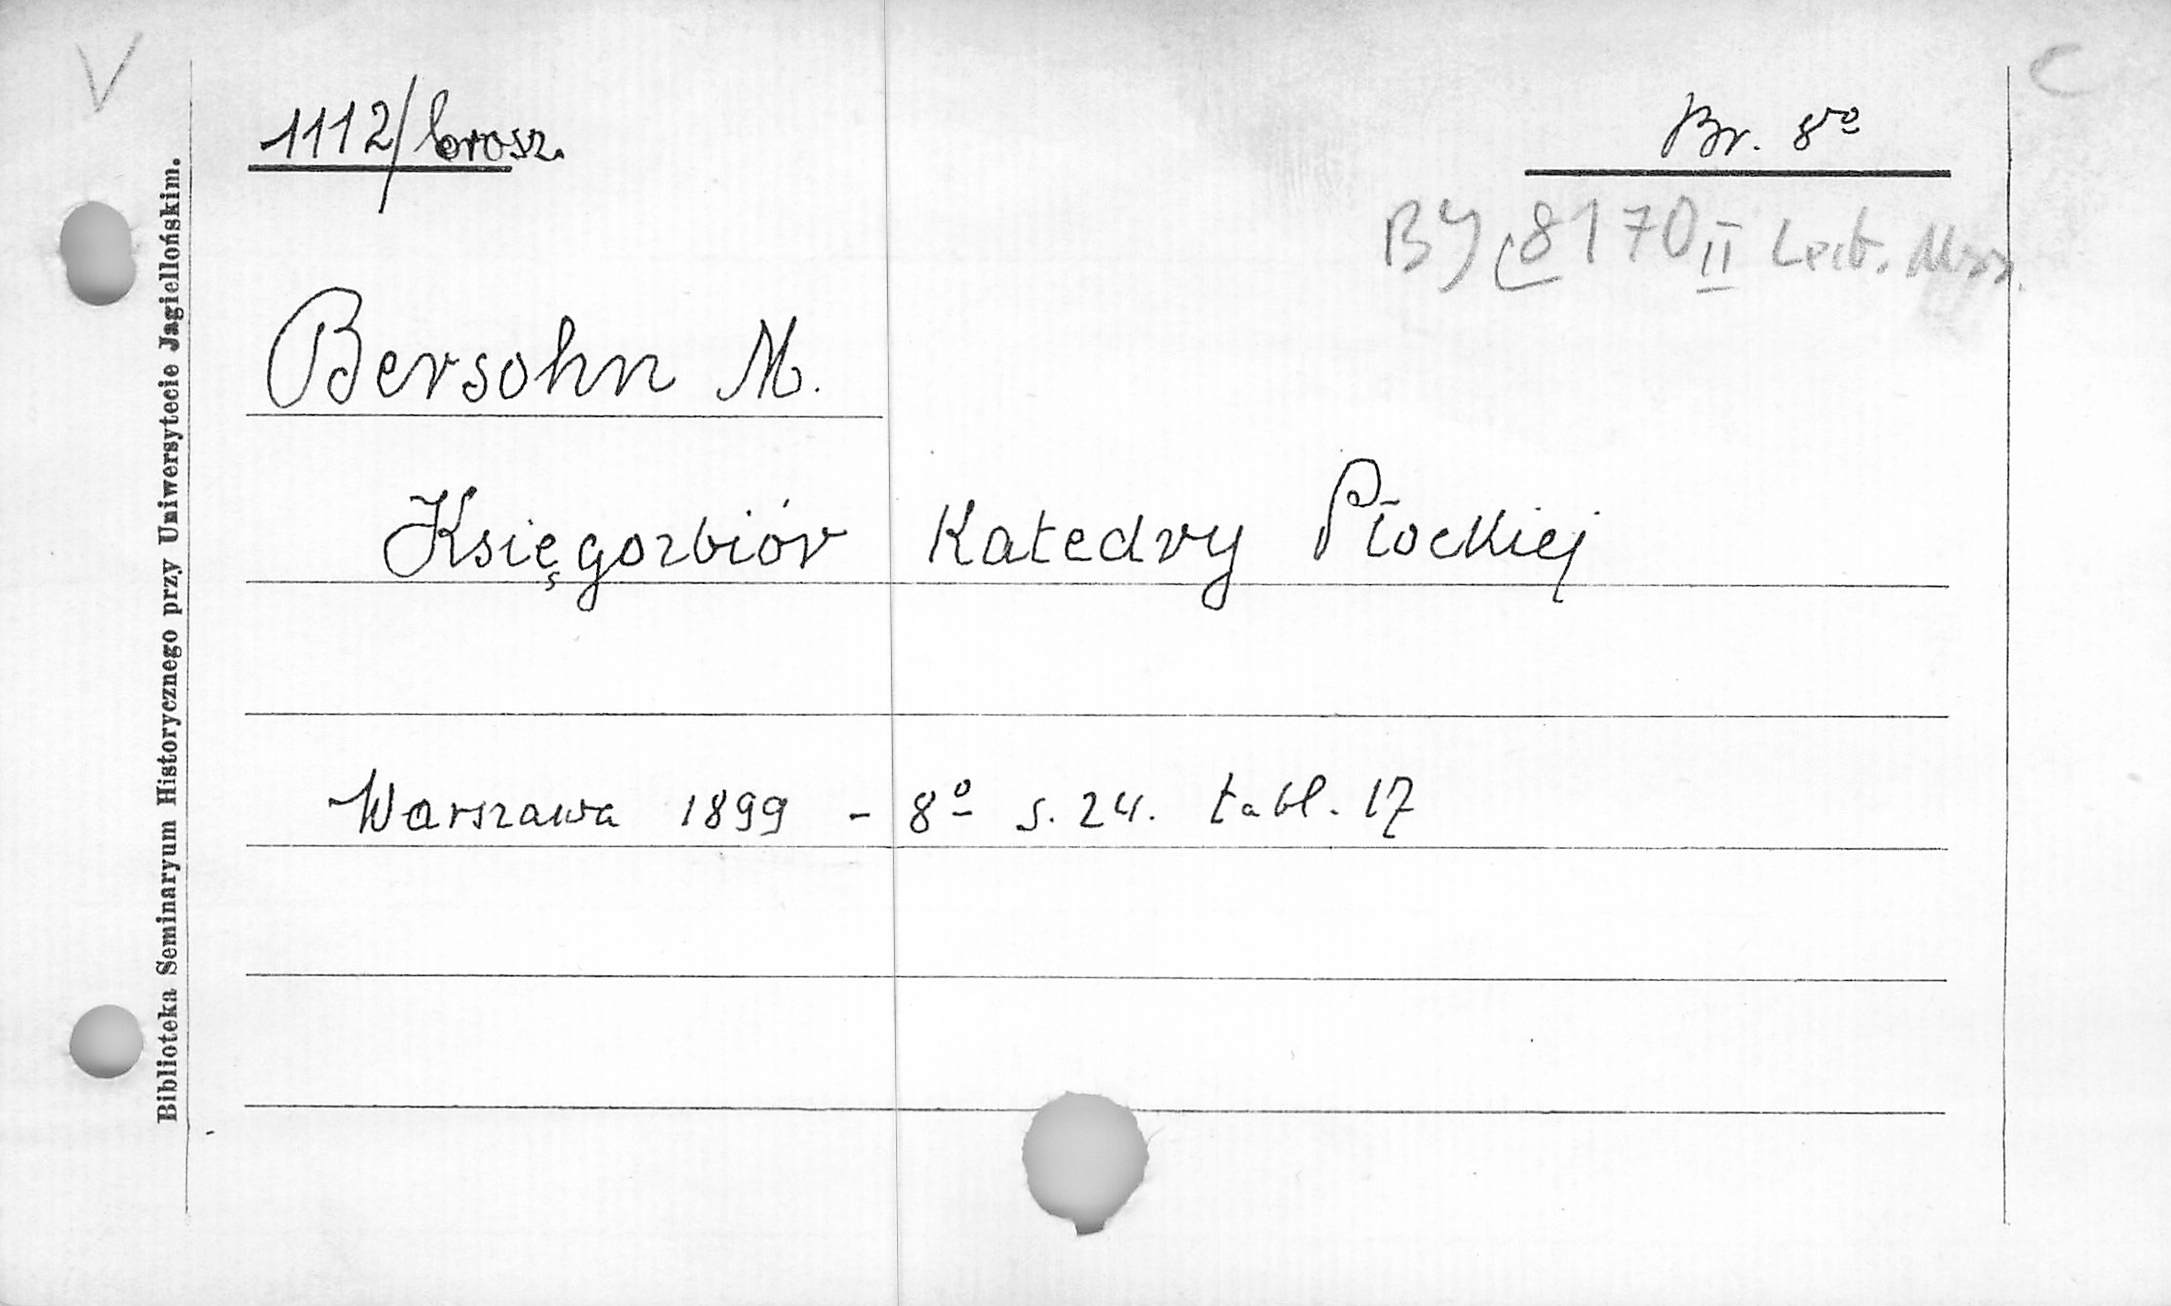 V
C
1112/brosz.
Br. 8vo
BJ 8170 II Lect. Mss.
Bersohn M.
Księgozbiór Katedry Płockiej
Warszawa 1899 - 8o s. 24. tabl. 17
Biblioteka Seminaryum Historycznego przy Uniwersytecie Jagiellońskim.